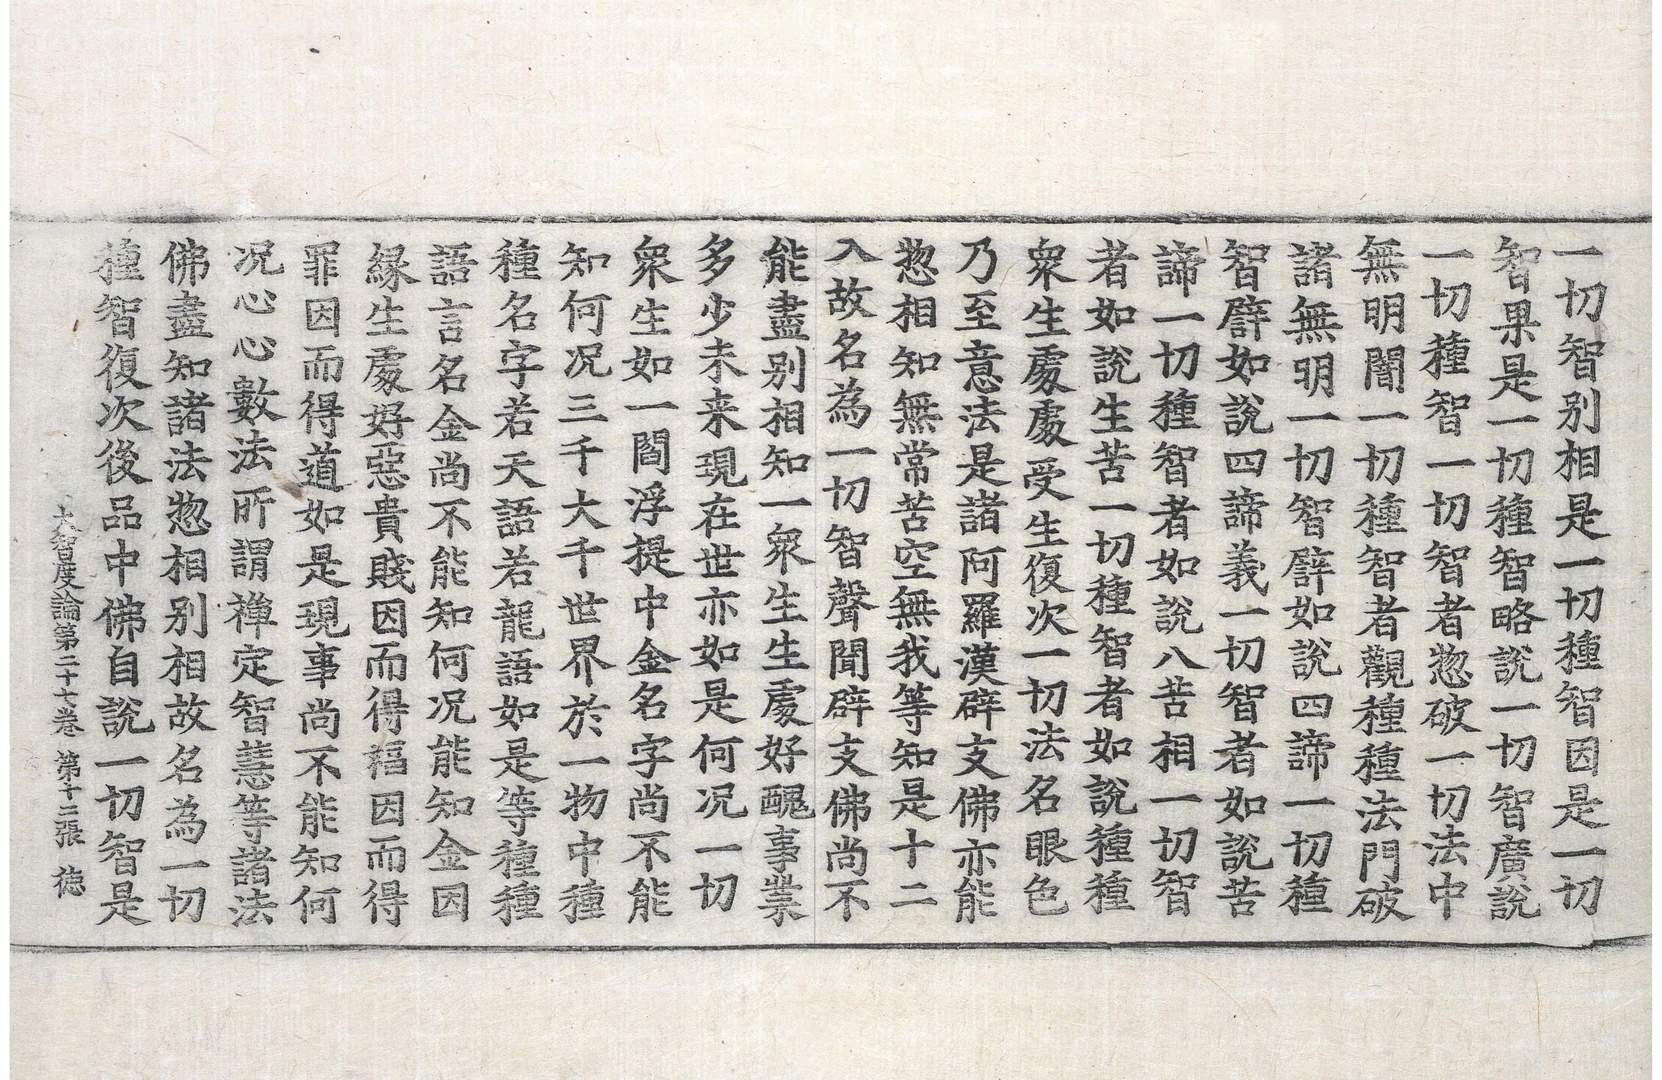 一切智別相是一切種智因是一切
智果是一切種智略說一切智廣說
一切種智一切智者惣破一切法中
無明闇一切種智者觀種種法門破
諸無明一切智譬如說四諦一切種
智譬如說四諦義一切智者如說苦
諦一切種智者如說八苦相一切智
者如說生苦一切種智者如說種種
衆生處處受生復次一切法名眼色
乃至意法是諸阿羅漢辟支佛亦能
惣相知無常苦空無我等知是十二
入故名為一切智聲聞辟支佛尚不
能盡別相知一衆生生處好醜事業
多少未来現在世亦如是何况一切
衆生如一閻浮提中金名字尚不能
知何况三千大千世界於一物中種
種名字若天語若龍語如是等種種
語言名金尚不能知何况能知金因
縁生處好惡貴賤因而得福因而得
罪因而得道如是現事尚不能知何
况心心數法所謂禪定智慧等諸法
佛盡知諸法惣相別相故名為一切
種智復次後品中佛自說一切智是
大智度論第二十七卷 第十二張 徳